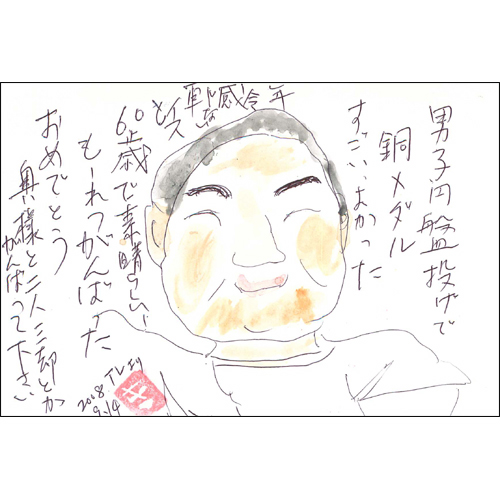 男子円盤投げで
銅メダル
すっごいよかった
年
60歳で素晴らしい
もーれつがんばった
おめでとう
奥様と二人三却とか
がんばって下さい
2008
9.14